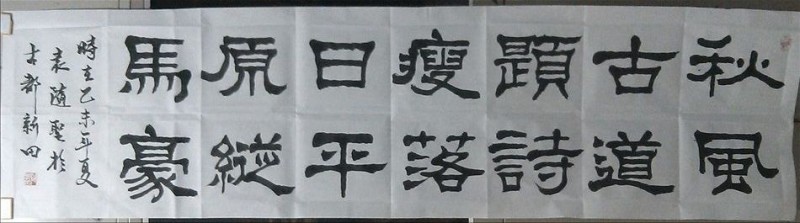 秋風
古道
題詩
瘦落
日平
原縱
馬豪
時在乙未年夏
袁隨聖於
古都新田